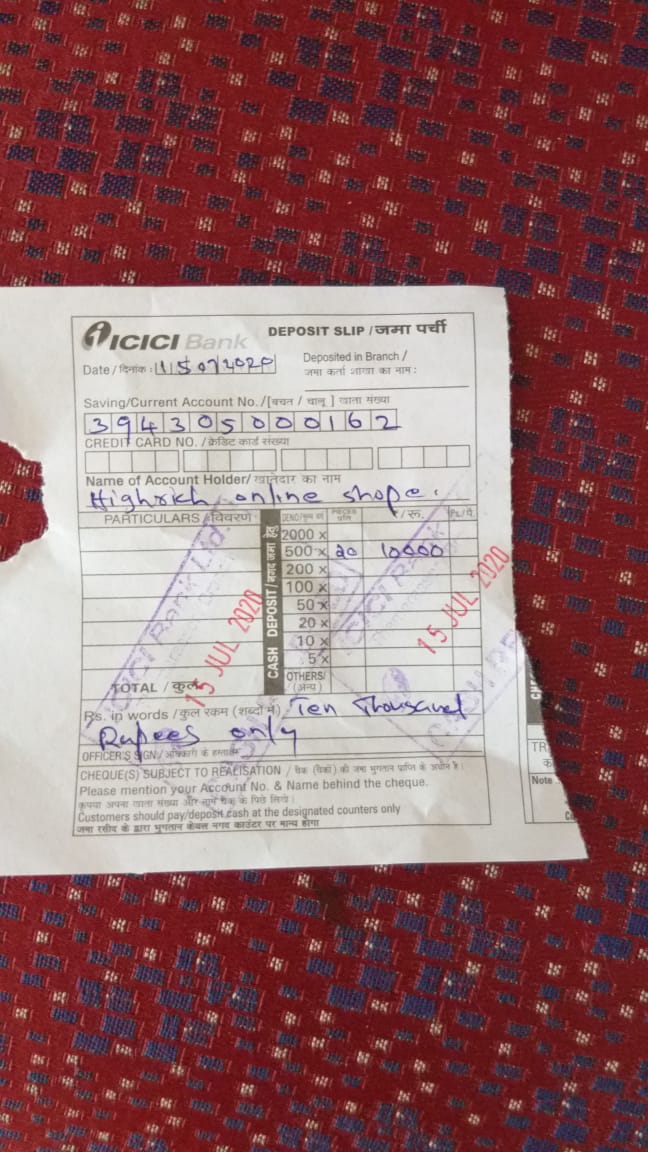 ICICI Bank
DEPOSIT SLIP / जमा पर्ची
Date / दिनांक : 15072020
Deposited in Branch /
जमा कर्ता शाखा का नाम :
Saving/Current Account No. / [बचत / चालू ] खाता संख्या
394305000162
CREDIT CARD NO. / क्रेडिट कार्ड संख्या
Name of Account Holder/ खातेदार का नाम
Highrich online shope.
PARTICULARS / विवरण
CASH DEPOSIT / नगद जमा हेतु
PIECES
₹/रू. Ps./पै.
2000 x
500 x 20 10000
200 x
100 x
50 x
20 x
10 x
5 x
OTHERS/
(अन्य)
TOTAL / कुल
ICICI BANK Ltd
15 JUL 2020
ICICI BANK
15 JUL 2020
Rs. in words / कुल रकम (शब्दों में) Ten Thousand
Rupees only
OFFICER'S SIGN / अधिकारी के हस्ताक्षर
CHEQUE(S) SUBJECT TO REALISATION / चैक (चैकों) की जमा भुगतान प्राप्ति के अधीन है।
Please mention your Account No. & Name behind the cheque.
कृपया अपना खाता संख्या और नाम चैक के पिछे लिखे।
Customers should pay/deposit cash at the designated counters only
जमा रसीद के द्वारा भुगतान केवल नगद काउंटर पर मान्य होगा
Note